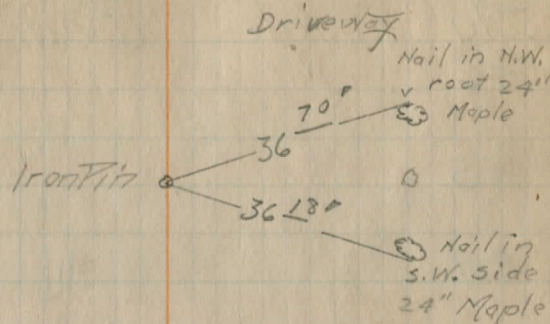 Driveway
Nail in N.W.
root 24"
Maple
70
36
Iron Pin
36 18
Nail in
S.W. Side
24" Maple